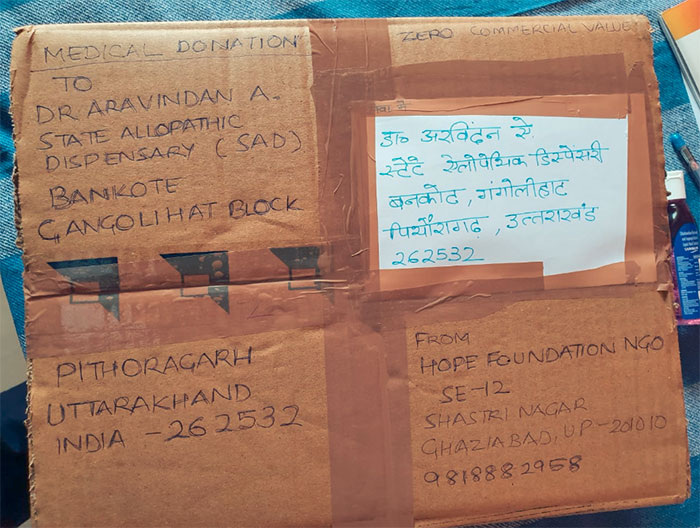 MEDICAL DONATION
TO
DR ARAVINDAN A.
STATE ALLOPATHIC
DISPENSARY (SAD)
BANKOTE
GANGOLIHAT BLOCK
PITHORAGARH
UTTARAKHAND
INDIA - 262532
ZERO COMMERCIAL VALUE
डा० अरविंदन से.
स्टेटे ऐलोपैथिक डिस्पेंसरी
बनकोट, गंगोलीहाट
पिथौरागढ़, उत्तराखंड
262532
FROM
HOPE FOUNDATION NGO
SE-12
SHASTRI NAGAR
GHAZIABAD, U.P-201010
9818882958